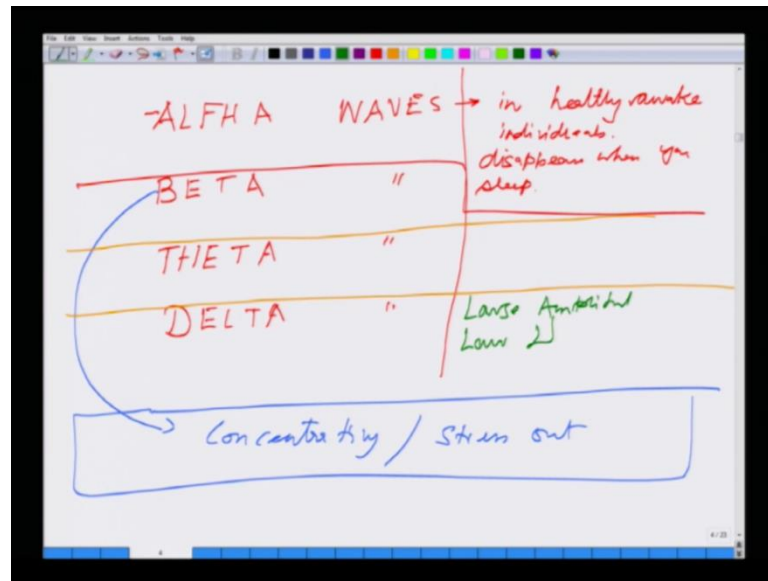 File Edit View Insert Actions Tools Help
-ALFHA WAVES → in healthy awake
individuals.
disappears when you
sleep.
BETA "
THETA "
DELTA "
Large
Low
Concentrating / Stress out
4/23
4